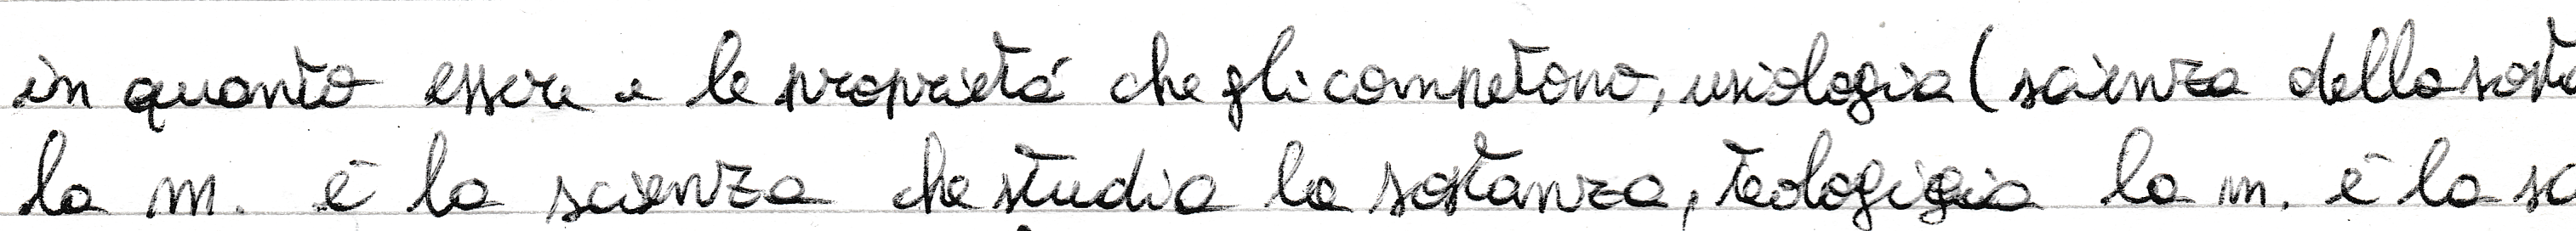 in quanto essere e le proprietá che gli competono, usiologia (scienza della sosta
la m. è la scienza che studia la sostanza, teologigia la m. è la sc